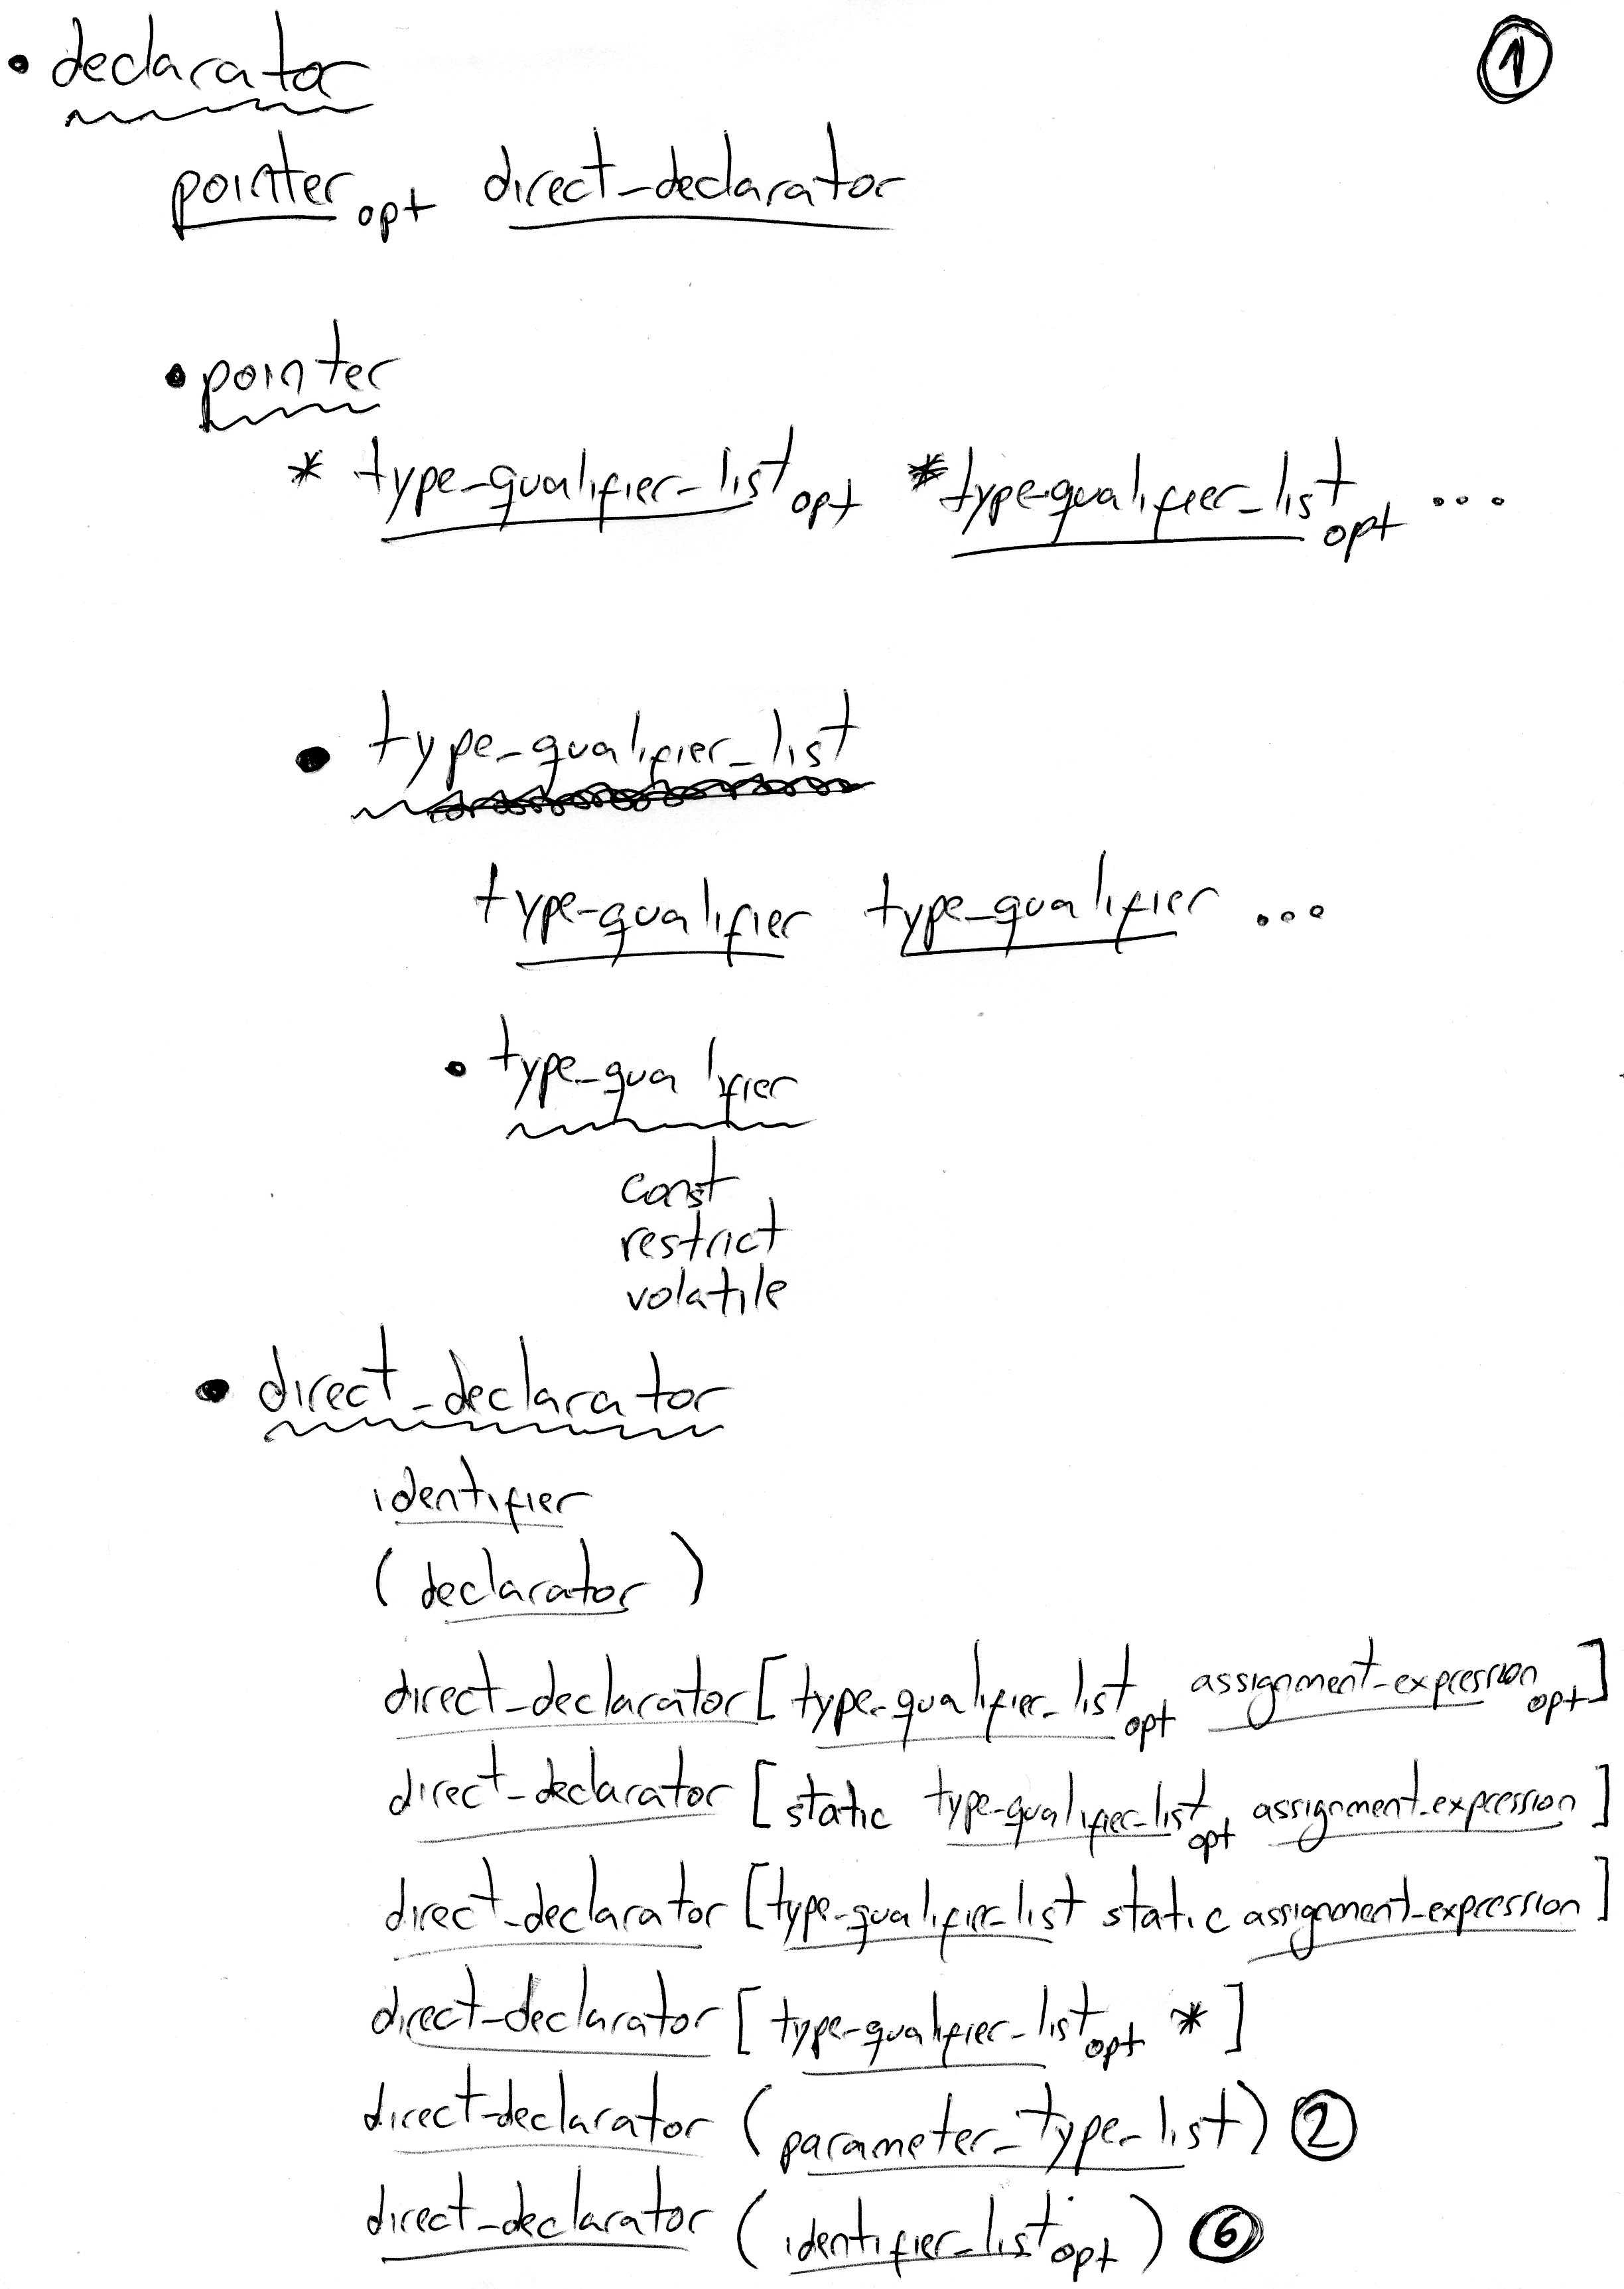 • declarator ①
pointer opt direct-declarator
• pointer
* type-qualifier-list opt * type-qualifier-list opt ...
• type-qualifier-list
type-qualifier type-qualifier ...
• type-qualifier
const
restrict
volatile
• direct-declarator
identifier
( declarator )
direct-declarator [ type-qualifier-list opt assignment-expression opt ]
direct-declarator [ static type-qualifier-list opt assignment-expression ]
direct-declarator [ type-qualifier-list static assignment-expression ]
direct-declarator [ type-qualifier-list opt * ]
direct-declarator ( parameter-type-list ) ②
direct-declarator ( identifier-list opt ) ⑥